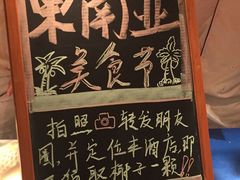 東南亚
美食节
拍照转发朋友
圈,并定位本酒店,即
可领取椰子一颗!!